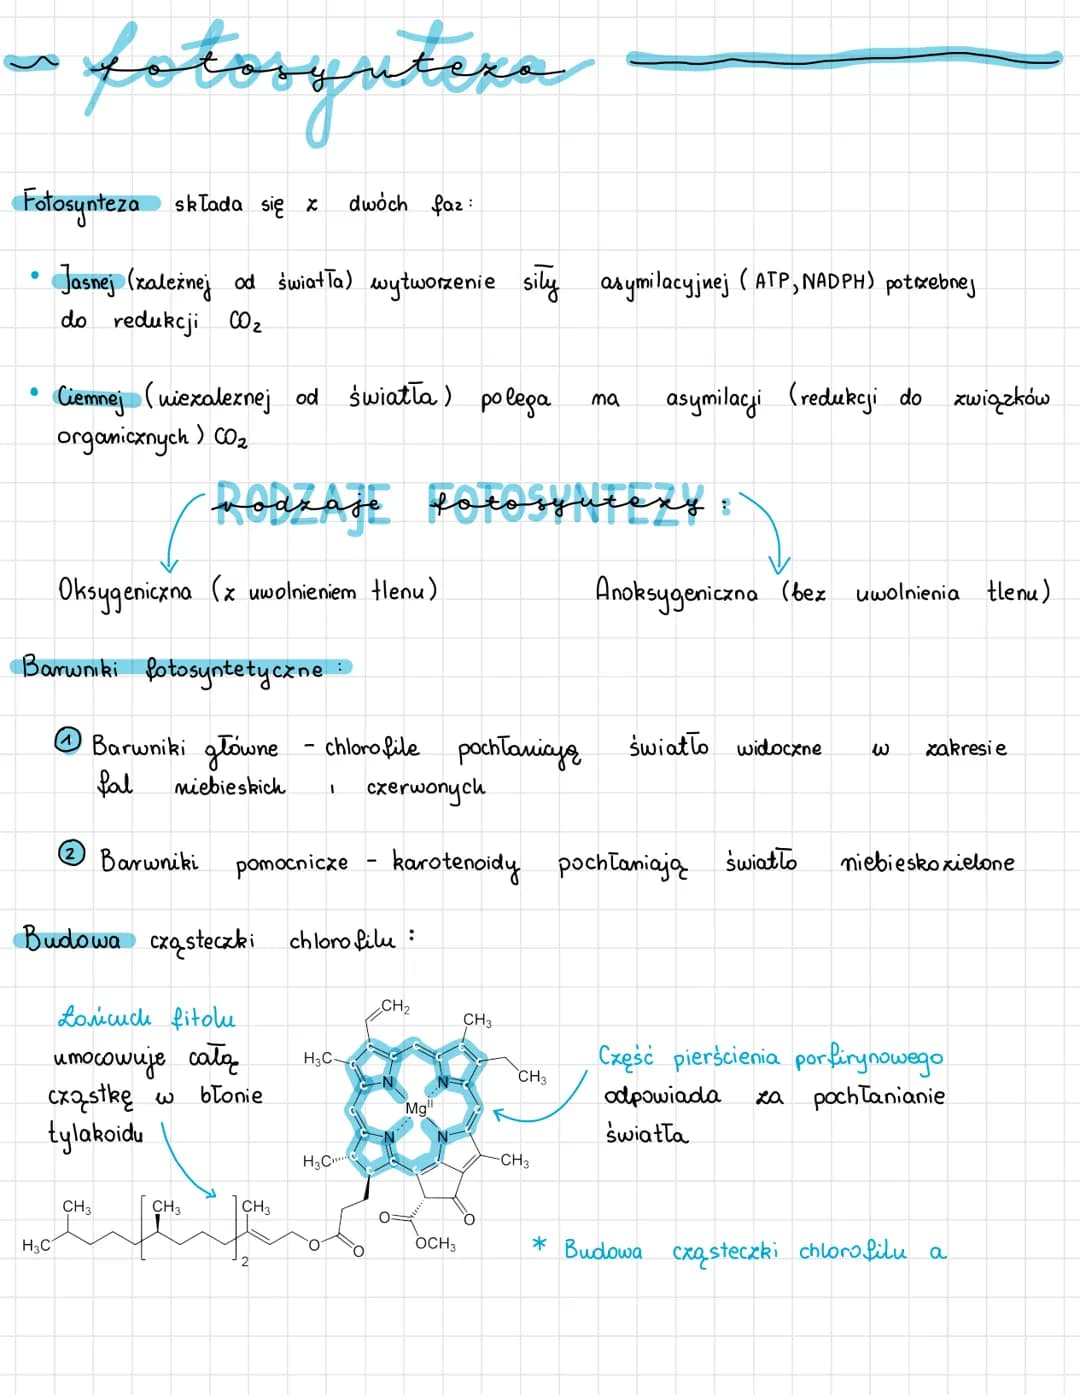 fotosynteza
Fotosynteza składa się z dwóch faz:
• Jasnej (zależnej od światła) wytworzenie siły asymilacyjnej (ATP, NADPH) potrzebnej
do redukcji CO₂
• Ciemnej (niezależnej od światła) polega na asymilacji (redukcji do związków
organicznych) CO₂
RODZAJE FOTOSYNTEZY:
rodzaje fotosyntezy
Oksygeniczna (z uwolnieniem tlenu)
Anoksygeniczna (bez uwolnienia tlenu)
Barwniki fotosyntetyczne:
1 Barwniki główne - chlorofile pochłaniają światło widoczne w zakresie
fal niebieskich i czerwonych
2 Barwniki pomocnicze - karotenoidy pochłaniają światło niebieskozielone
Budowa cząsteczki chlorofilu:
Łańcuch fitolu
umocowuje całą
cząstkę w błonie
tylakoidu
CH₂
CH₃
H₃C
CH₃
N
N
Mg^II
N
N
H₃C
CH₃
Część pierścienia porfirynowego
odpowiada za pochłanianie
światła
CH₃
CH₃
CH₃
H₃C
2
O
O
O
O
OCH₃
* Budowa cząsteczki chlorofilu a